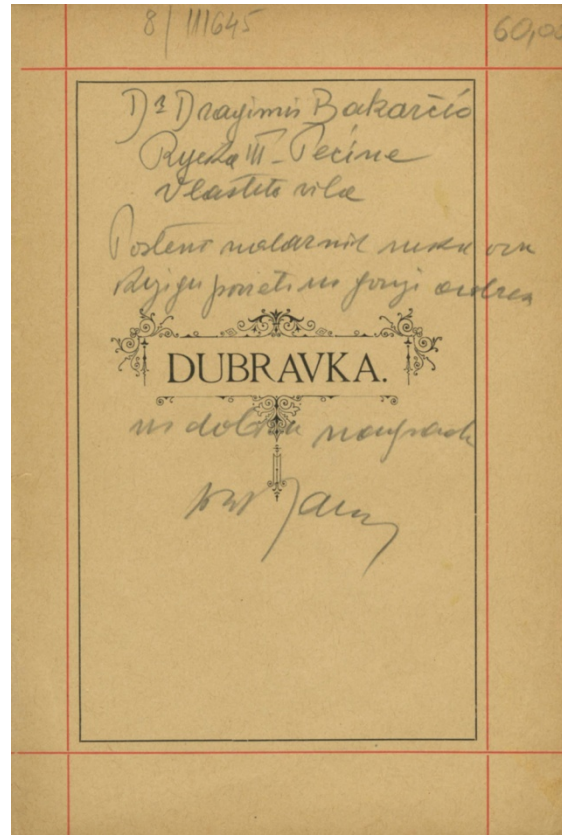 8/III645
60,00
Dr Dragimir Bakarčić
Rijeka III - Pećine
Vlastita vila
Pošteni nalaznik neka ovu
knjigu povrati na gornji
DUBRAVKA.
uz dobru nagradu